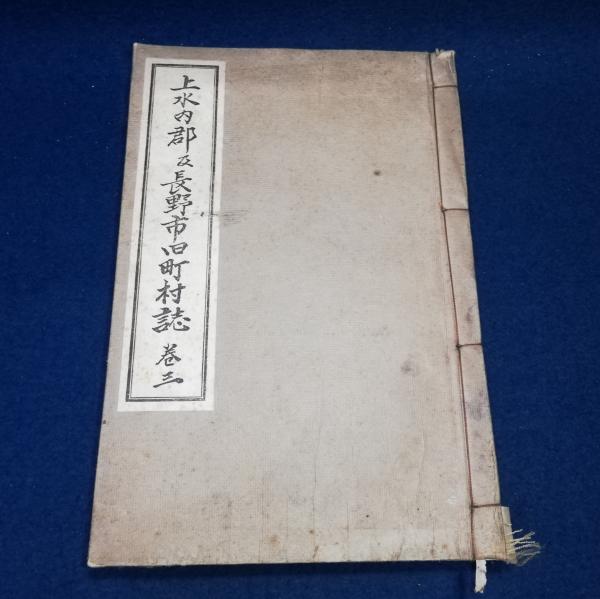 上水内郡及長野市旧町村誌 巻三